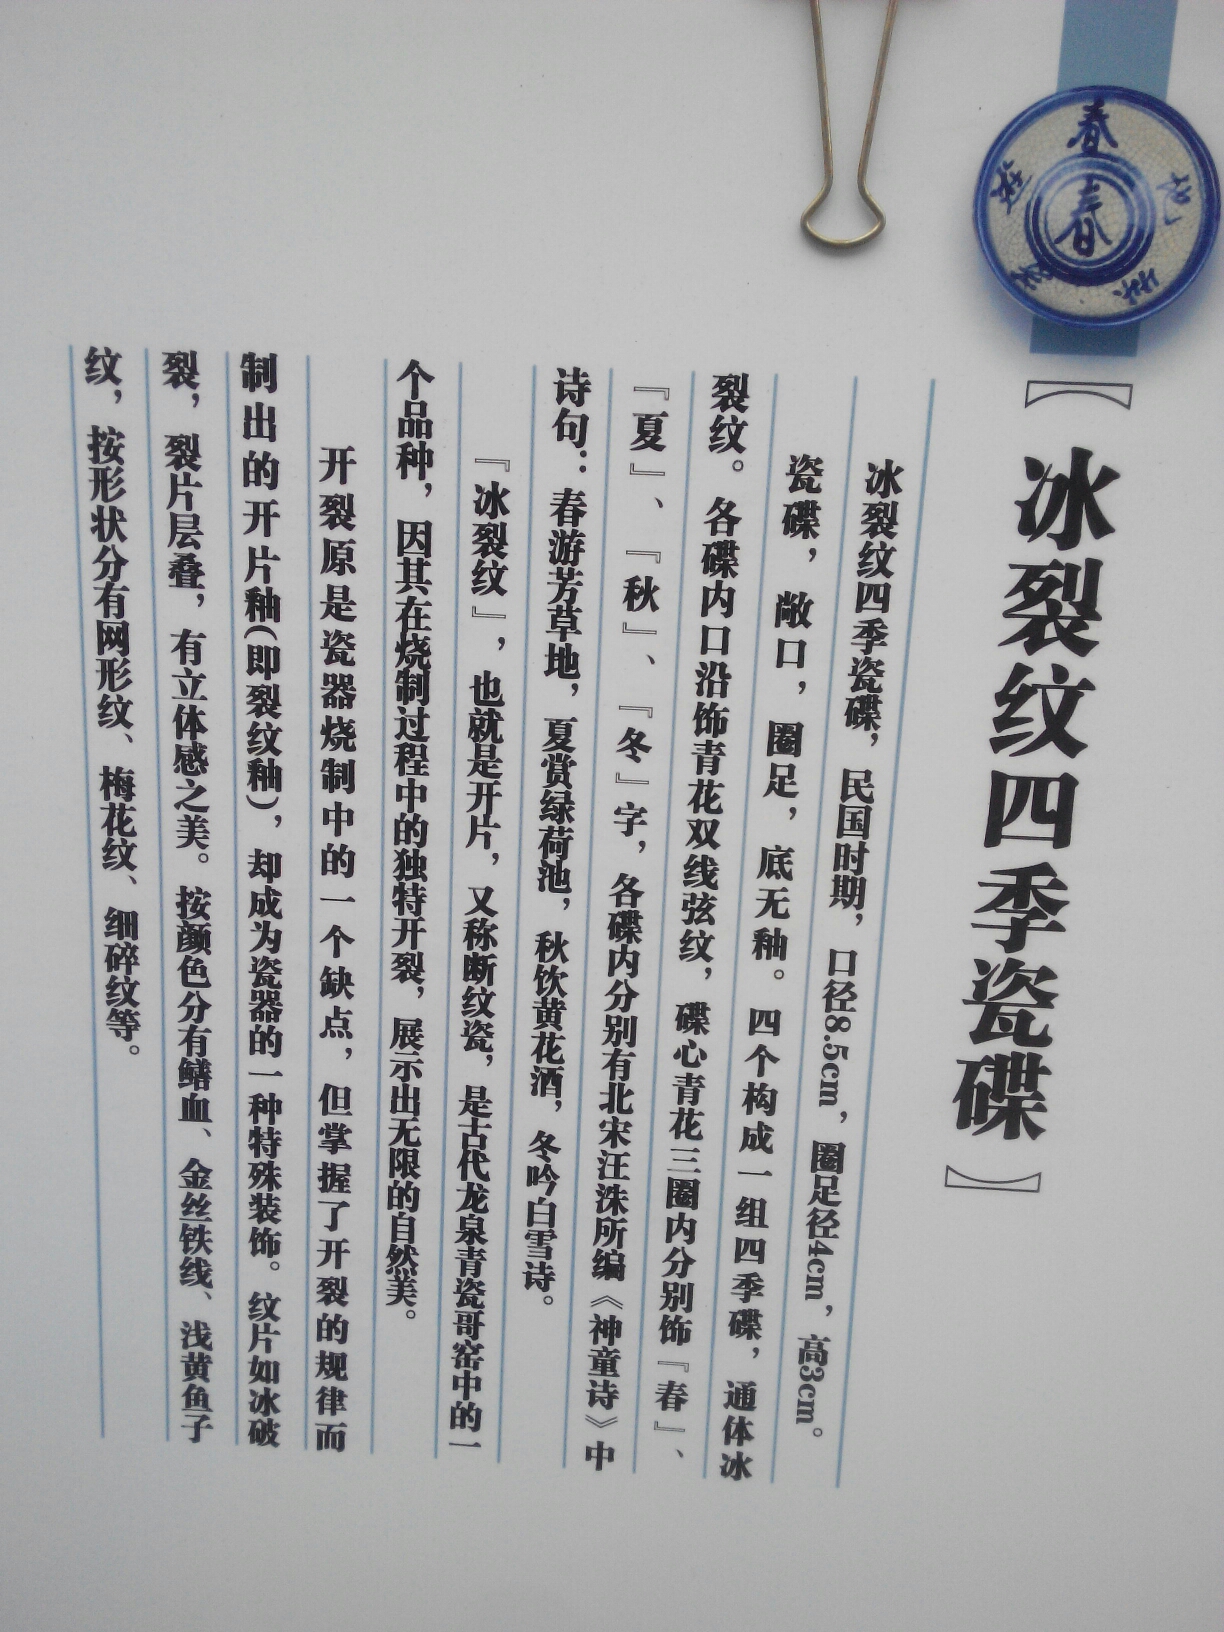 春
春
游
芳
草
地
【冰裂纹四季瓷碟】
冰裂纹四季瓷碟，民国时期，口径8.5cm，圈足径4cm，高3cm。
瓷碟，敞口，圈足，底无釉。四个构成一组四季碟，通体冰
裂纹。各碟内口沿饰青花双线弦纹，碟心青花三圈内分别饰『春』、
『夏』、『秋』、『冬』字，各碟内分别有北宋汪洙所编《神童诗》中
诗句：春游芳草地，夏赏绿荷池，秋饮黄花酒，冬吟白雪诗。
『冰裂纹』，也就是开片，又称断纹瓷，是古代龙泉青瓷哥窑中的一
个品种，因其在烧制过程中的独特开裂，展示出无限的自然美。
开裂原是瓷器烧制中的一个缺点，但掌握了开裂的规律而
制出的开片釉(即裂纹釉)，却成为瓷器的一种特殊装饰。纹片如冰破
裂，裂片层叠，有立体感之美。按颜色分有鳝血、金丝铁线、浅黄鱼子
纹，按形状分有网形纹、梅花纹、细碎纹等。